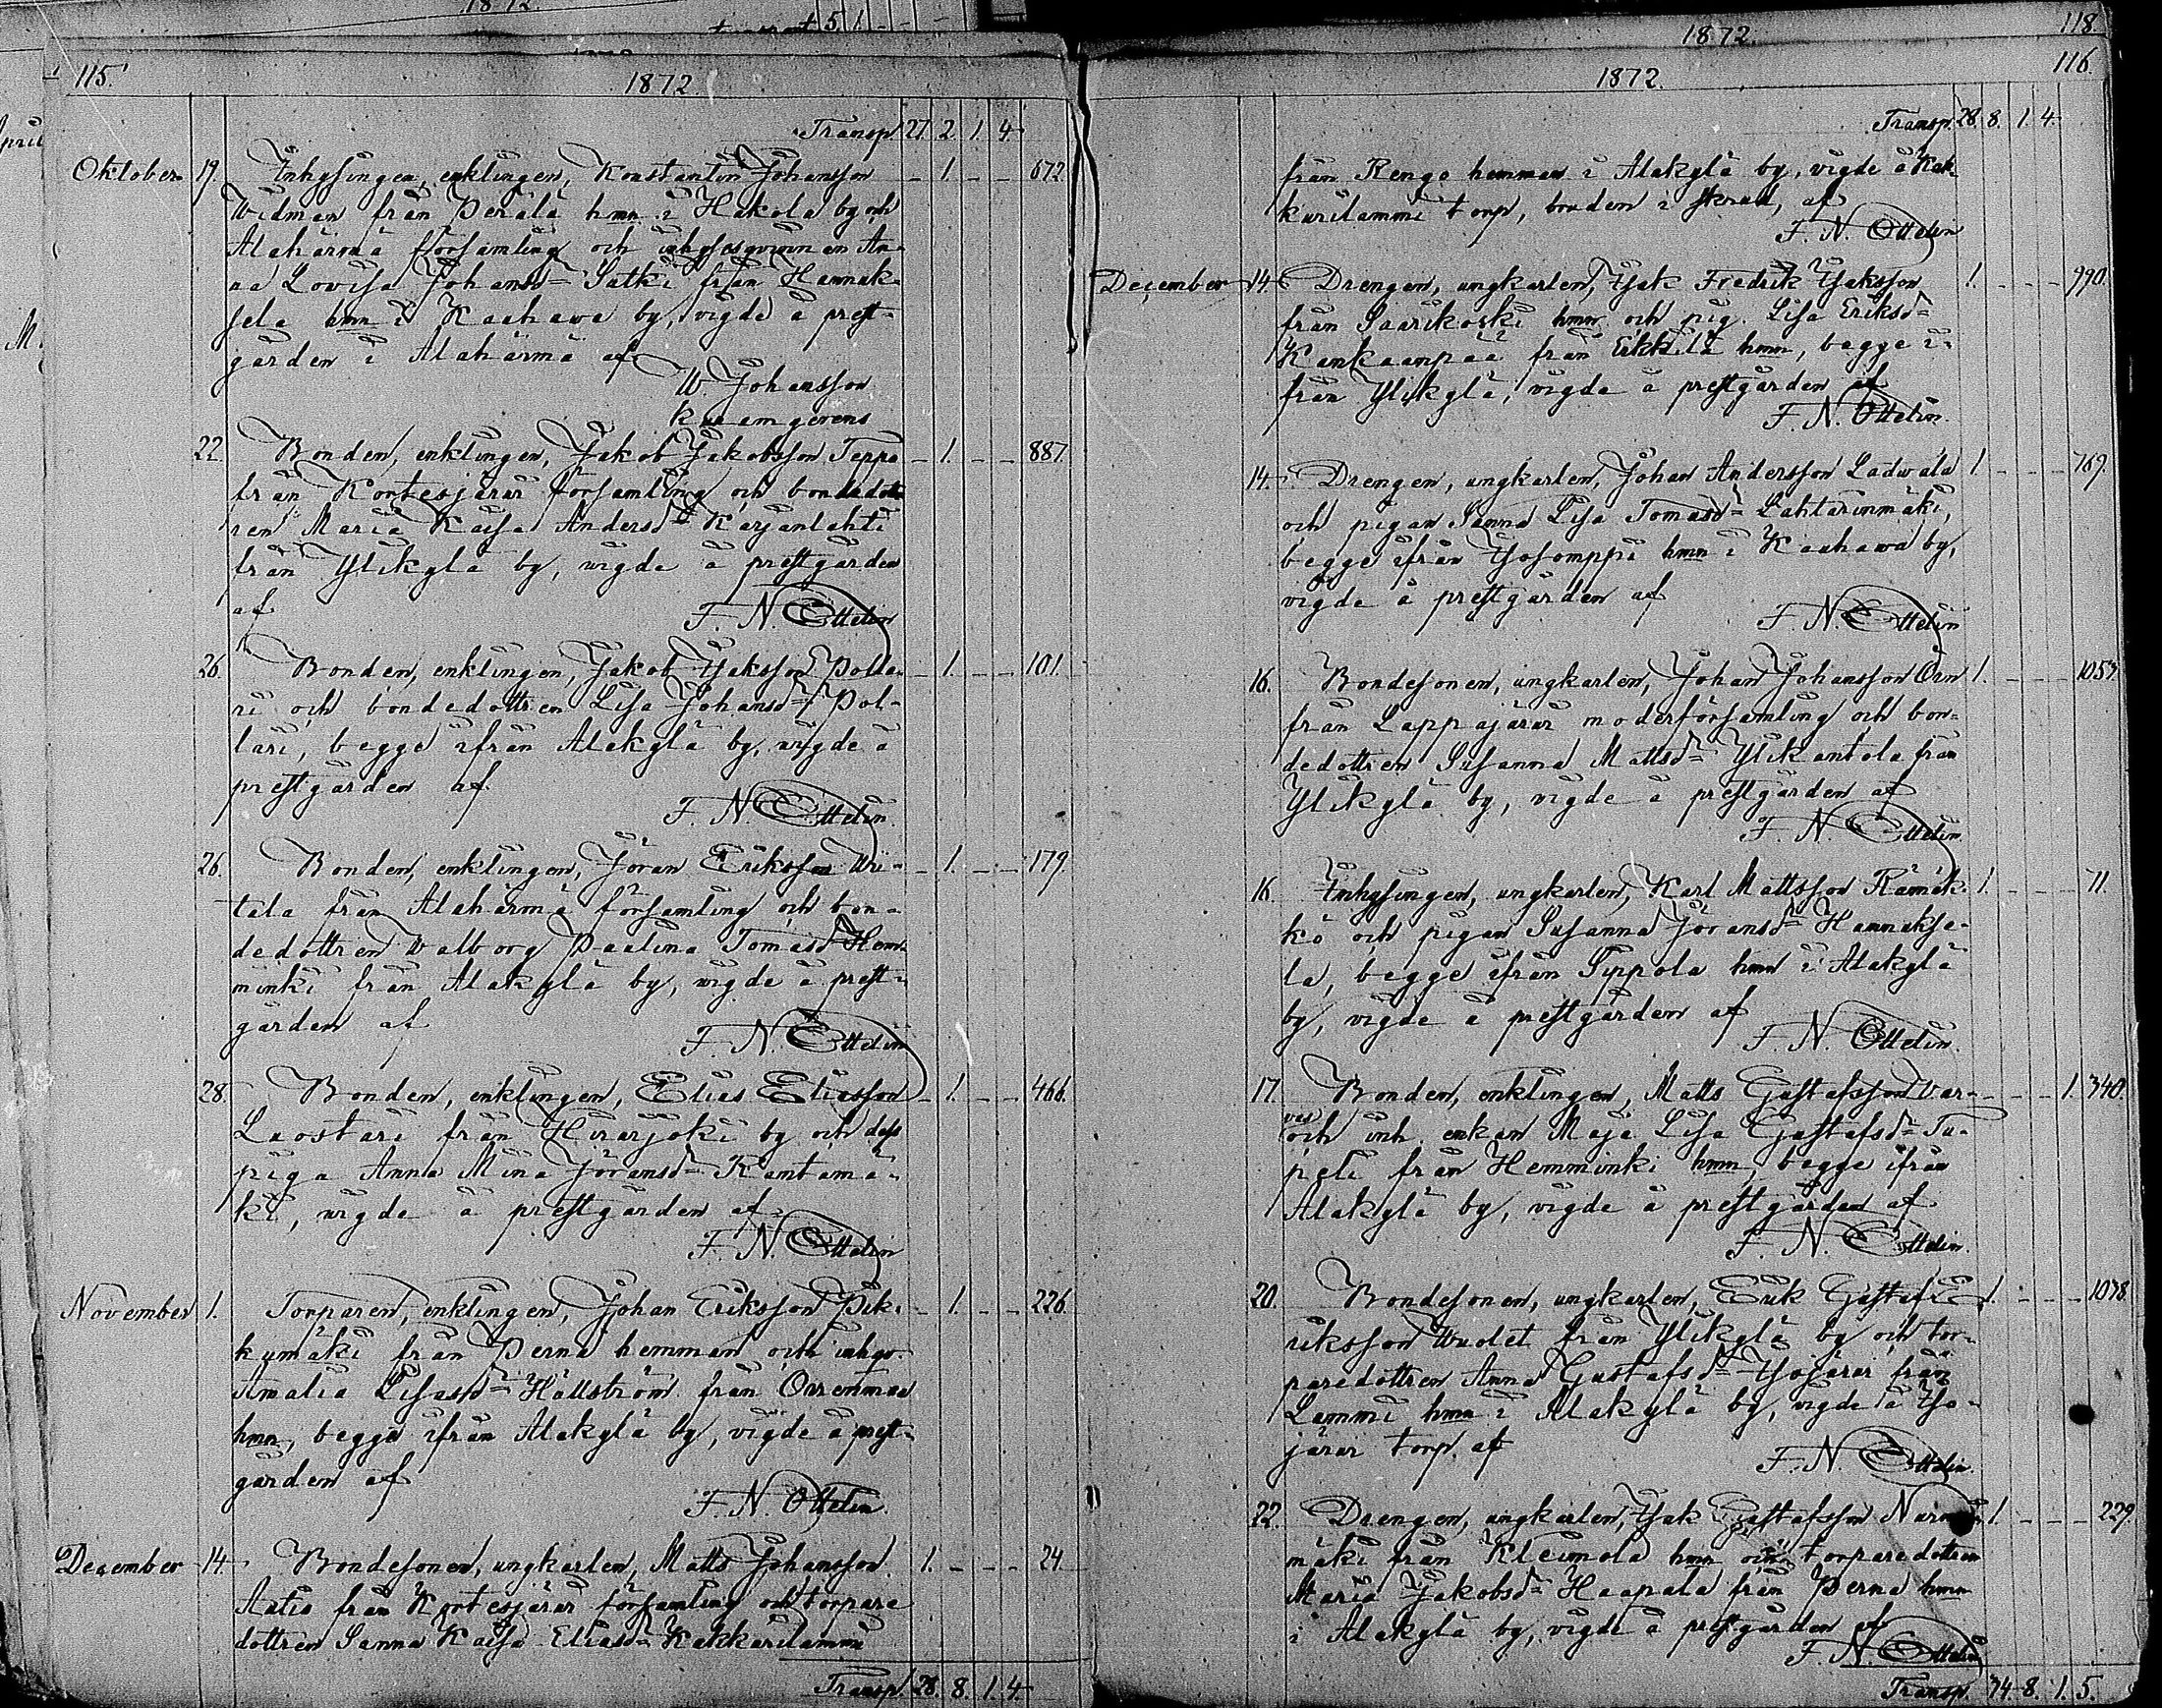 115.
1872
Transp. 27. 2. 1. 4.
Oktober 19. Inhysingen, enklingen, Konstantin Johansson - 1. - - 672
Widman från Perälä hmn i Hakola by och
Alahärmä församling och inhysesqvinnan An-
na Lovisa Johansd:r Salki från Hannuk-
sela hmn i Kauhawa by, vigde å prest-
gården i Alahärmä af
W. Johansson
22. Bonden, enklingen, Jakob Jakobsson Teppo - 1. - - 887.
från Kortesjärvi församling och bondedott-
ren Maria Kaisa Andersd:r Karjanlahti
från Ylikylä by, vigde å prestgården
af
F. N. Ottelin
26. Bonden, enklingen, Jakob Isaksson Polla- - 1. - - 101.
ri och bondedottren Lisa Johansd:r Pol-
lari, begge ifrån Alakylä by, vigde å
prestgården af
F. N. Ottelin.
26. Bonden, enklingen, Jöran Eriksson Wii- - 1. - - 179.
tala från Alahärmä församling och bon-
dedottren Walborg Paulina Tomasd:r Hem-
minki från Alakylä by, vigde å prest-
gården af
F. N. Ottelin
28. Bonden, enklingen, Elias Eliasson - 1. - - 466.
Luostari från Hirvijoki by och dess
piga Anna Mina Jöransd:r Rantamä-
ki, vigde å prestgården af
F. N. Ottelin
November 1. Torparen, enklingen, Johan Eriksson Pik- - 1. - - 226.
kumäki från Perna hemman och inhqv.
Amalia Lisasd:r Hällström från Orrenmaa
hmn, begge ifrån Alakylä by, vigde å prest-
gården af
F. N. Ottelin.
December 14. Bondesonen, ungkarlen, Matts Johansson 1. - - - 24.
från Kortesjärvi församling och torpare
dottren Sanna Kaisa Eliasd:r Kakkurilammi
Transp. 28. 8. 1. 4.
1872.
118.
1872.
116.
Transp. 28. 8. 1. 4.
från Rengo hemman i Alakylä by, vigde å Kak-
kurilammi torp, af
F. N. Ottelin
December 14. Drengen, ungkarlen, Isak Fredrik Isaksson 1. - - - 990.
från Saarikoski hmn och pig. Lisa Eriksd:r
Kankaanpää från Erkkilä hmn, begge i-
från Ylikylä, vigde å prestgården af
F. N. Ottelin.
14. Drengen, ungkarlen, Johan Andersson Ladwala 1. - - - 769.
och pigan Sanna Lisa Tomasd:r Lahtarinmäki,
begge ifrån Isosomppi hmn i Kauhawa by,
vigde å prestgården af
F. N. Ottelin
16. Bondesonen, ungkarlen, Johan Johansson Örn 1. - - - 1053.
från Lappajärvi moderförsamling och bon-
dedottren Susanna Mattsd:r Ylikantola från
Ylikylä by, vigde å prestgården af
F. N. Ottelin
16. Inhysingen, ungkarlen, Karl Mattsson Rämäk- 1. - - - 71.
kö och pigan Susanna Jöransd:r Hannukse-
la, begge ifrån Sippola hmn i Alakylä
by, vigde å prestgården af
F. N. Ottelin.
17. Bonden, enklingen, Matts Gustafsson Var- - - - 1. 340.
vas
och inh. enkan Maja Lisa Gustafsd:r Ta-
peli från Hemminki hmn, begge ifrån
Alakylä by, vigde å prestgården af
F. N. Ottelin.
20. Bondesonen, ungkarlen, Erik Gustaf E- 1. - - - 1038.
riksson Wuolet från Ylikylä by och tor-
paredottren Anna Gustafsd:r Isojärvi från
Lammi hmn i Alakylä by, vigde å Iso-
järvi torp af
F. N. Ottelin.
22. Drengen, ungkarlen, Isak Gustafsson 1. - - - 229.
mäki från Kleimola hmn och torparedottren
Maria Jakobsd:r Haapala från Perna hmn
i Alakylä by, vigde å prestgården af
F. N. Ottelin
Transp. 34. 8. 1. 5.